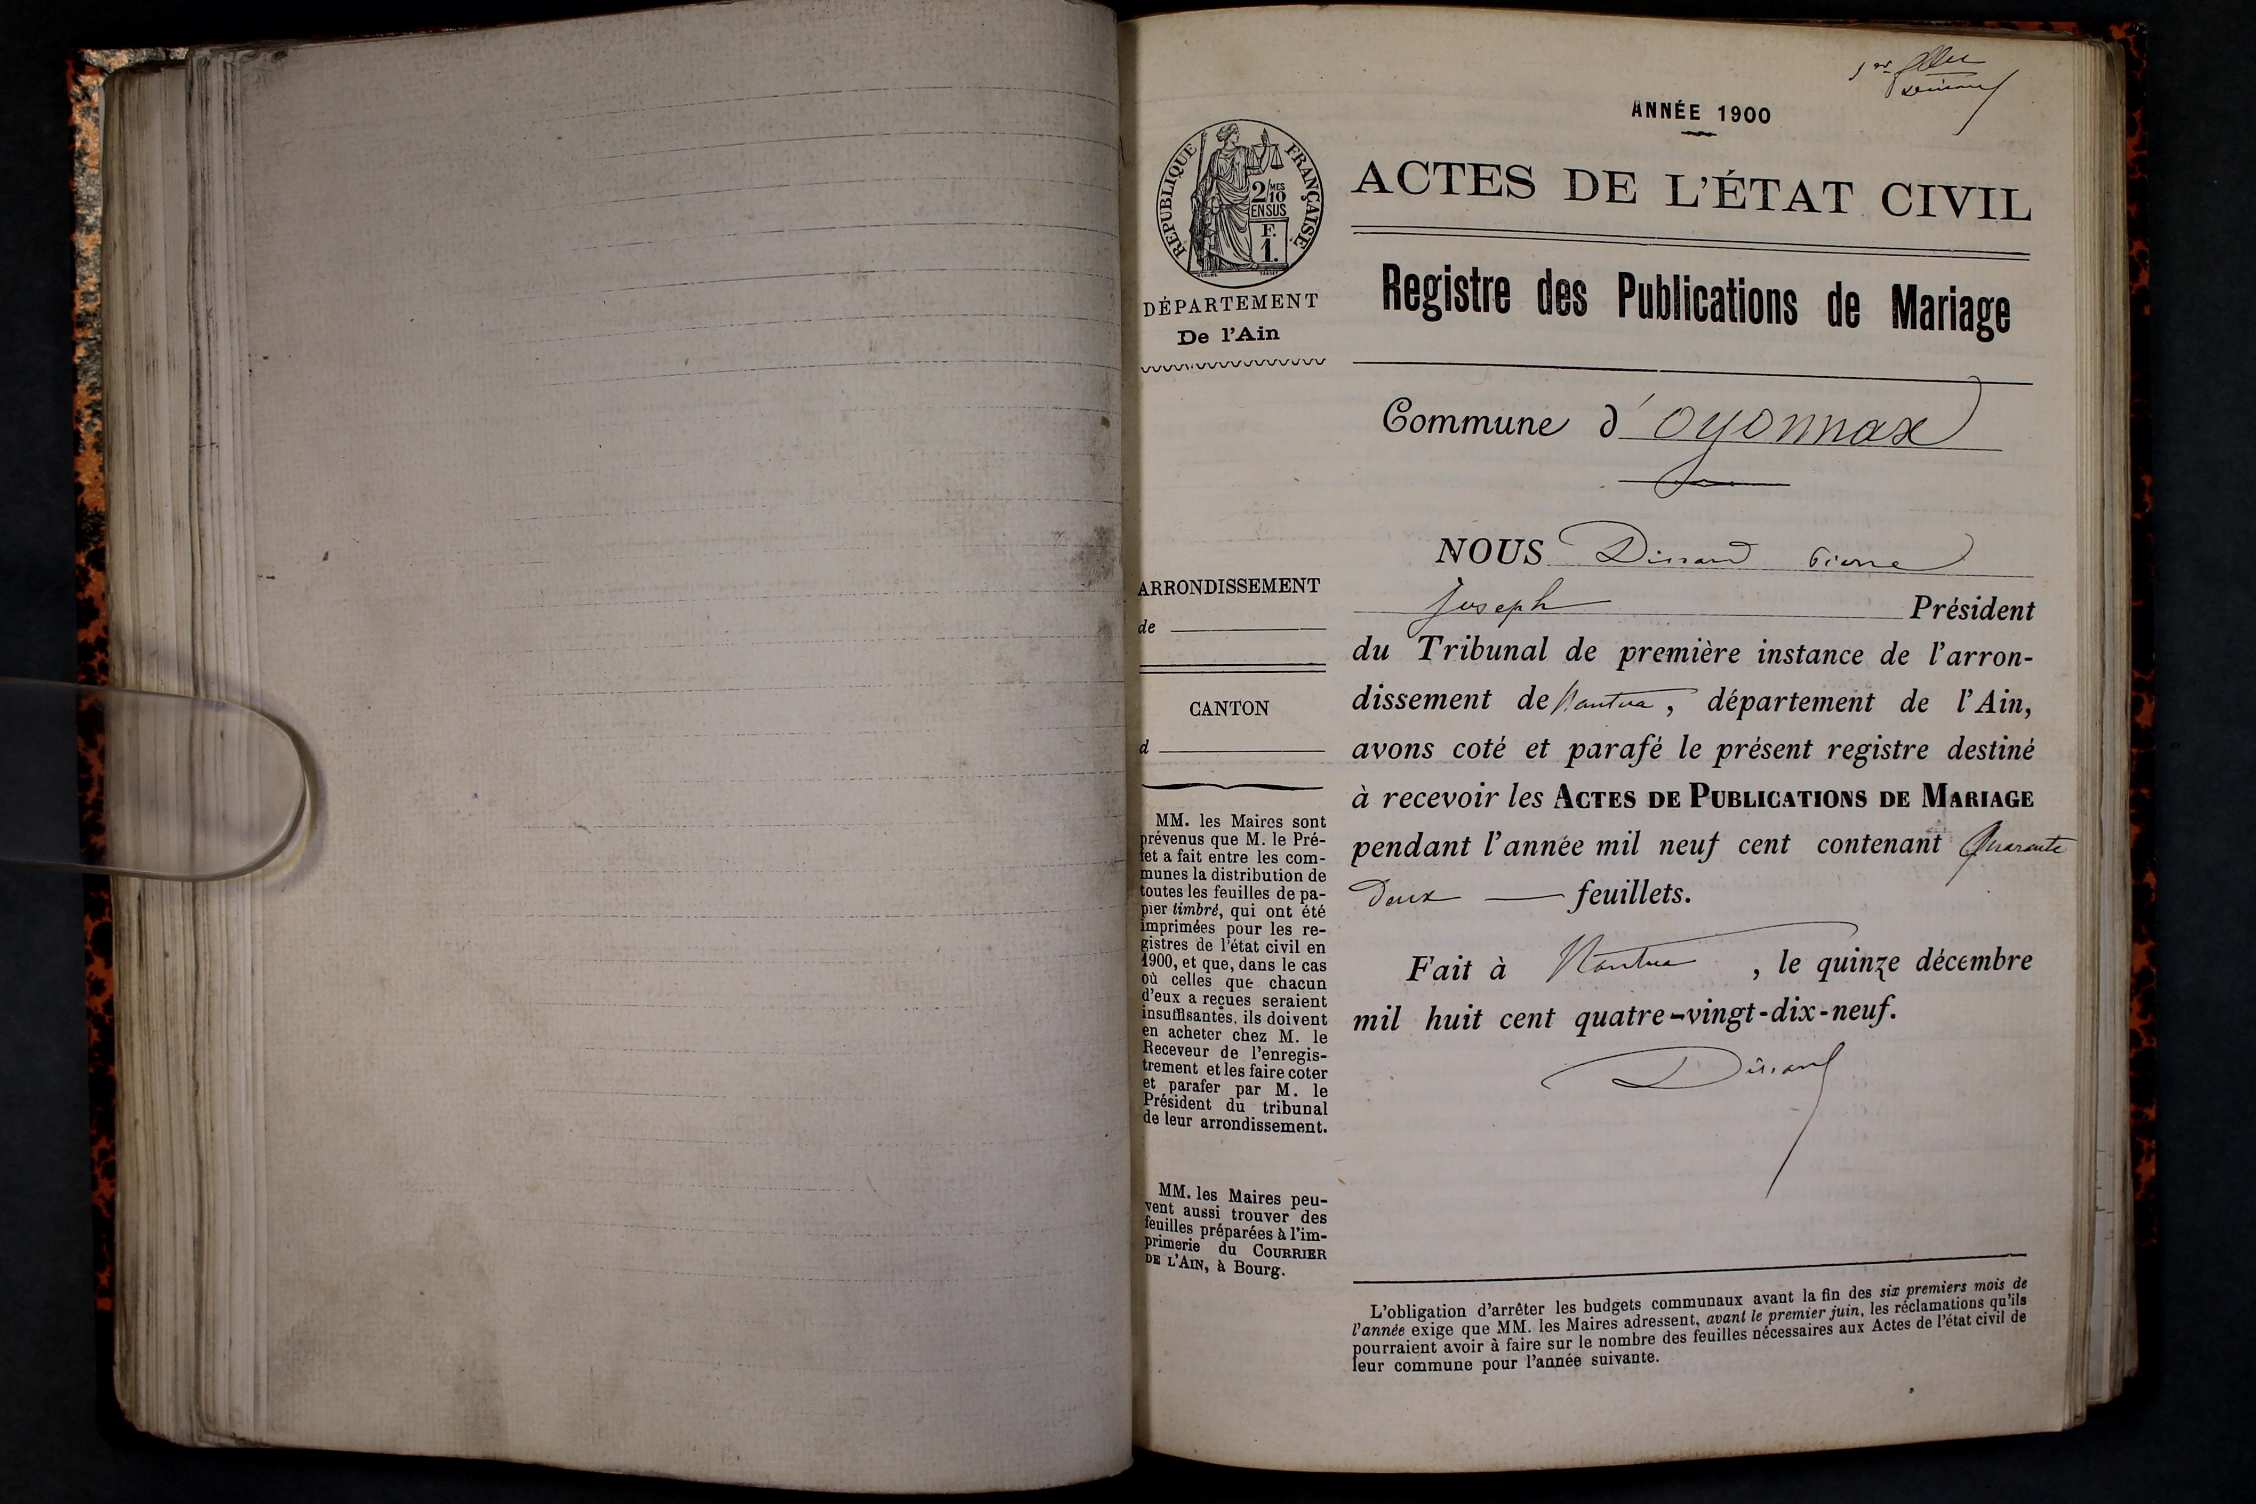 1er feuillet
ANNÉE 1900
ACTES DE L'ÉTAT CIVIL
Registre des Publications de Mariage
RÉPUBLIQUE FRANÇAISE
2/MES 10
EN SUS
F.
1.
DÉPARTEMENT
De l'Ain
Commune d'Oyonnax
ARRONDISSEMENT
de
CANTON
d
MM. les Maires sont
prévenus que M. le Pré-
fet a fait entre les com-
munes la distribution de
toutes les feuilles de pa-
pier timbré, qui ont été
imprimées pour les re-
gistres de l'état civil en
1900, et que, dans le cas
où celles que chacun
d'eux a reçues seraient
insuffisantes, ils doivent
en acheter chez M. le
Receveur de l'enregis-
trement et les faire coter
et parafer par M. le
Président du tribunal
de leur arrondissement.
MM. les Maires peu-
vent aussi trouver des
feuilles préparées à l'im-
primerie du COURRIER
DE L'AIN, à Bourg.
NOUS Pierre
Joseph Président
du Tribunal de première instance de l'arron-
dissement de Nantua, département de l'Ain,
avons coté et parafé le présent registre destiné
à recevoir les ACTES DE PUBLICATIONS DE MARIAGE
pendant l'année mil neuf cent contenant Quarante
Deux — feuillets.
Fait à Nantua, le quinze décembre
mil huit cent quatre-vingt-dix-neuf.
L'obligation d'arrêter les budgets communaux avant la fin des six premiers mois de
l'année exige que MM. les Maires adressent, avant le premier juin, les réclamations qu'ils
pourraient avoir à faire sur le nombre des feuilles nécessaires aux Actes de l'état civil de
leur commune pour l'année suivante.